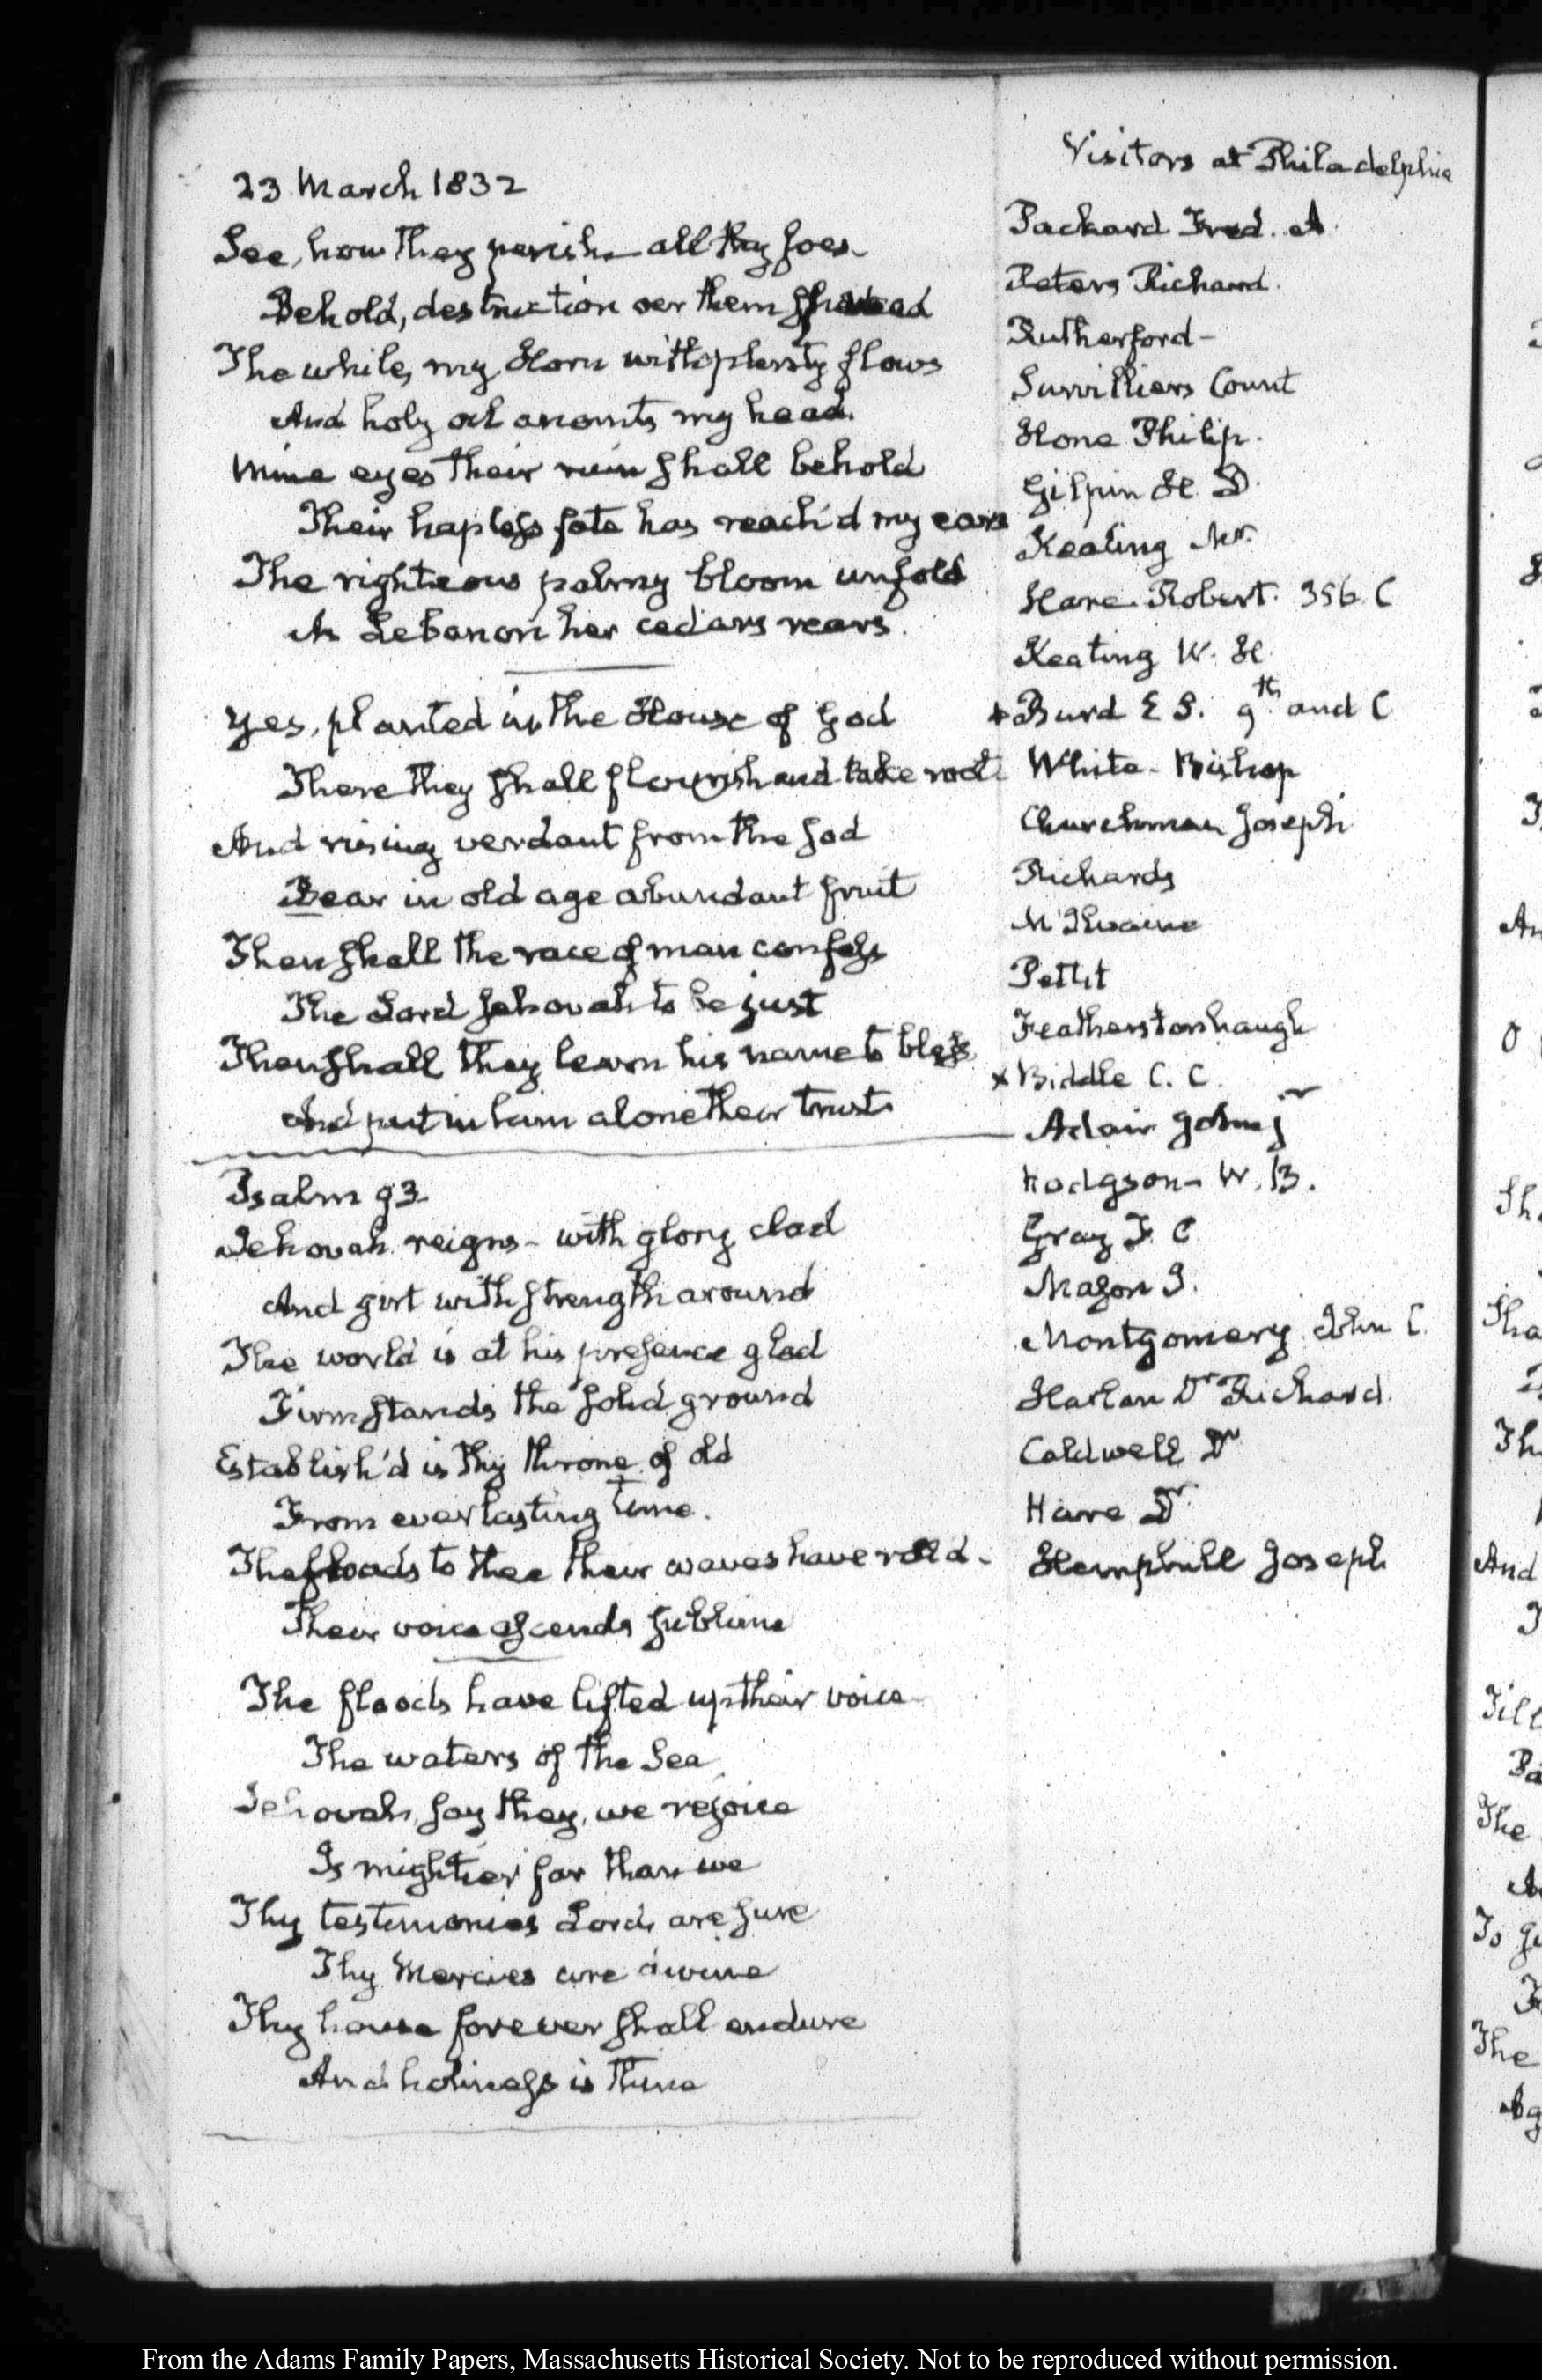 23 March 1832
See, how they perish all thy foes
Behold, destruction oer them spread
The while, my Horn with plenty flows
And holy oil anoints my head.
Mine eyes their ruin shall behold
Their hapless fate has reach'd my ears
The righteous palmy bloom unfold
In Lebanon her cedars rears.
Yes, planted in the House of God
There they shall flourish and take root
And rising verdant from the sod
Bear in old age abundant fruit
Then shall the race of man confess
The Lord Jehovah to be just
Then shall they learn his name to bless
And put in him alone their trust.
Psalm 93
Jehovah reigns - with glory clad
And girt with strength around
The world is at his presence glad
Firm stands the solid ground
Establish'd is thy throne of old
From everlasting time.
The floods to thee their waves have roll'd -
Their voice ascends sublime
The floods have lifted up their voice
The waters of the Sea
Jehovah, say they, we rejoice
Is mightier far than we
Thy testimonies Lord, are sure
Thy Mercies are divine
Thy house forever shall endure
And holiness is thine
Visitors at Philadelphia
Packard Fred. A
Peters Richard.
Rutherford -
Survilliers Count
Hone Philip.
Gilpin H. D.
Keating Mr.
Hare. Robert. 356. C
Keating W. H.
x Burd E S. 9th and C
White - Bishop
Churchman Joseph
Richards
McIlvaine
Pettit
Featherstonhaugh
x Biddle C. C.
Adair
Hodgson - W. B.
Gray F. C
Mason J.
Montgomery. John C.
Harlan Dr Richard.
Caldwell Dr
Hare Dr
Hemphill Joseph
An
O
Sh
Tha
Th
And
Till
Ba
The
A
To gi
The
Ag
From the Adams Family Papers, Massachusetts Historical Society. Not to be reproduced without permission.